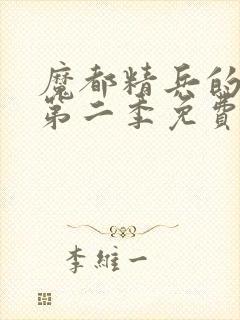 魔都精兵的
第二季免費
李維一